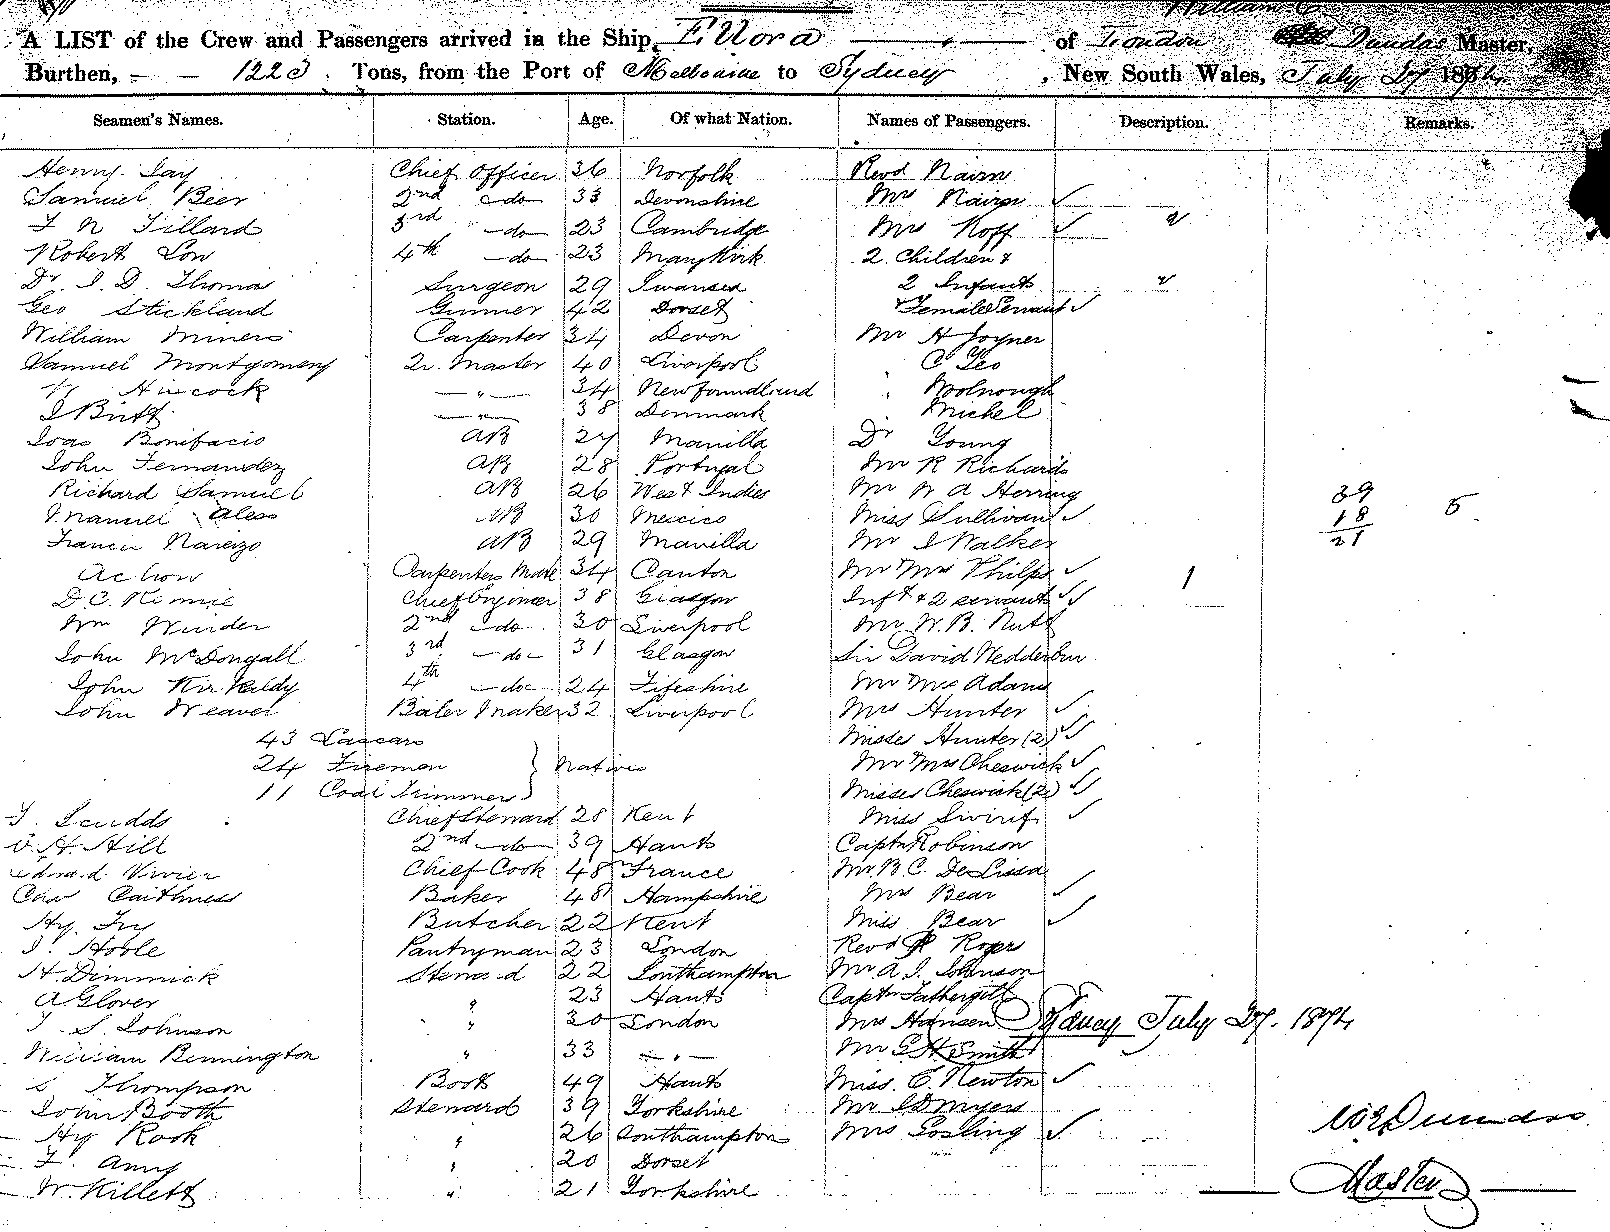 A LIST of the Crew and Passengers arrived in the Ship, Ellora of London Dundas Master,
Burthen, 1223 Tons, from the Port of Melbourne to Sydney, New South Wales, July 27 1874
Seamen's Names. Station. Age. Of what Nation. Names of Passengers. Description. Remarks.
Henry Jay Chief Officer 36 Norfolk Revd Nairn
Samuel Beer 2nd do 33 Devonshire Mrs Nairn
F N Tillard 3rd do 23 Cambridge Mrs Roff
Robert Low 4th do 23 Marykirk 2 Children &
Dr. J. D. Thomas Surgeon 29 Swansea 2 Infants
Geo Stickland Gunner 42 Dorset Female Servant
William Miners Carpenter 34 Devon Mr H Joyner
Samuel Montgomery Qr. Master 40 Liverpool C Leo
Hincock " 34 Newfoundland Woolnough
J Butt " 38 Denmark Michel
Joas Bonifacio AB 27 Manilla Dr Young
John Fernandez AB 28 Portugal Mr R Richards
Richard Samuel AB 26 West Indies Mr W A Herring 39
Manuel Ales AB 30 Mexico Miss Sullivan 18 5
Francis Narcizo AB 29 Manilla Mr J Walker 21
Achow Carpenters Mate 34 Canton Mr Mrs Philps 1
D. C. Chief Engineer 38 Glasgow Inft & 2 servants
Wm Winder 2nd do 30 Liverpool Mr W. B. Nutt
John McDongall 3rd do 31 Glasgow Sir David Wedderbur
John Kirkaldy 4th do 24 Fifeshire Mr McAdam
John Weaver Boiler Maker 32 Liverpool Mrs Hunter
43 Lascars Misses Hunter (2)
24 Firemen Natives Mr Mrs Cheswick
11 Coal Trimmers Misses Cheswick (2)
J. Scudds Chief Steward 28 Kent Miss
H. Hill 2nd do 39 Hants Captn Robinson
Edward Vivier Chief Cook 48 France Mr. B. C. De Lissa
Chas Caithness Baker 48 Hampshire Mrs Bear
Hy. Fry Butcher 22 Kent Miss Bear
J. Hoble Pantryman 23 London Revd Roger
H. Dimmick Steward 22 Southampton Mr. A. J. Johnson
A Glover " 23 Hants Captn Fathergill
J. S. Johnson " 30 London Mrs Hansen Sydney July 27. 1874
William Bennington " 33 " Mr G H Smith
Thompson Boots 49 Hants Miss. C. Newton
John Booth Steward 39 Yorkshire Mr J D Myers
Hy Rook " 26 Southampton Mrs Gosling W E Dundas
F. Amy " 20 Dorset
W. Killett " 21 Yorkshire Master